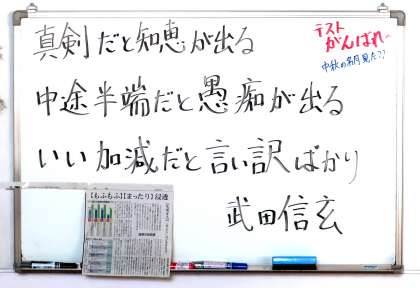 真剣だと知恵が出る
中途半端だと愚痴が出る
いい加減だと言い訳ばかり
武田信玄
テスト
がんばれ〜
中秋の名月見た??
【もふもふ】【まったり】浸透